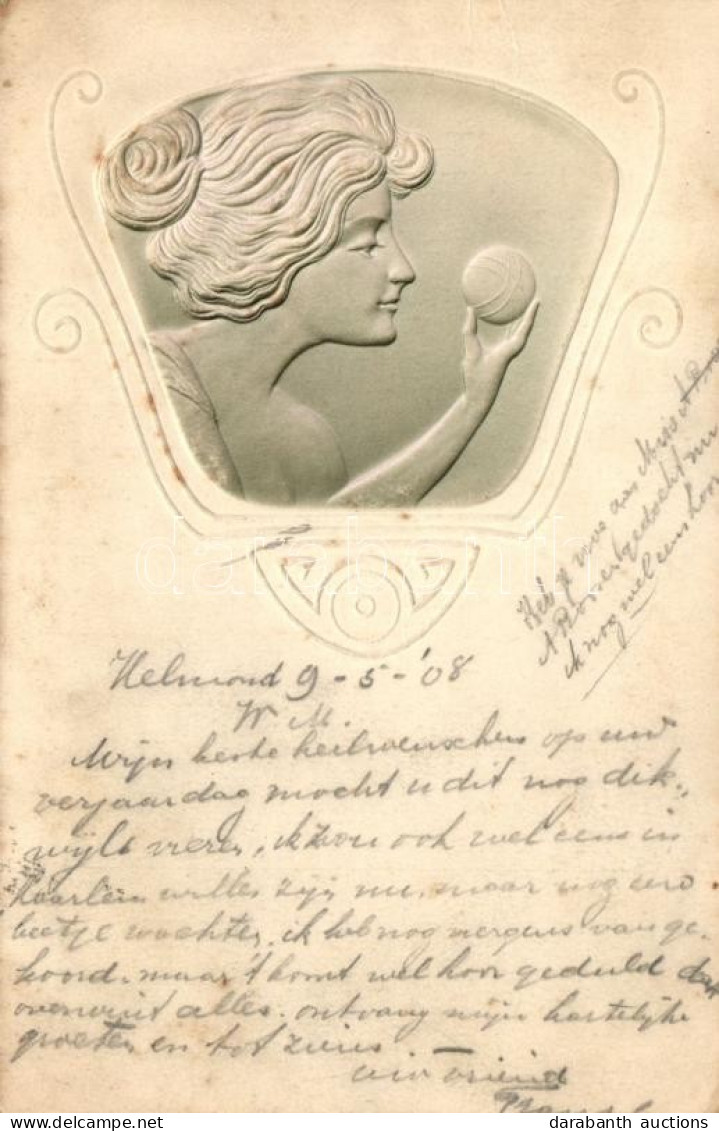 Helmond 9-5-'08
W. M.
Mijn beste heilwenschen op uw
verjaardag mocht u dit nog dik-
wijls vieren, ik zou ook wel eens in
Haarlem willen zijn nu, maar nog een
beetje wachten. ik heb nog nergens van ge-
hoord. maar 't komt wel hoor geduld
overwint alles. ontvang mijn hartelijke
groeten en tot ziens
uw vriend
Heb je
ik nog wel eens hoor
darabanth
darabanth auctions